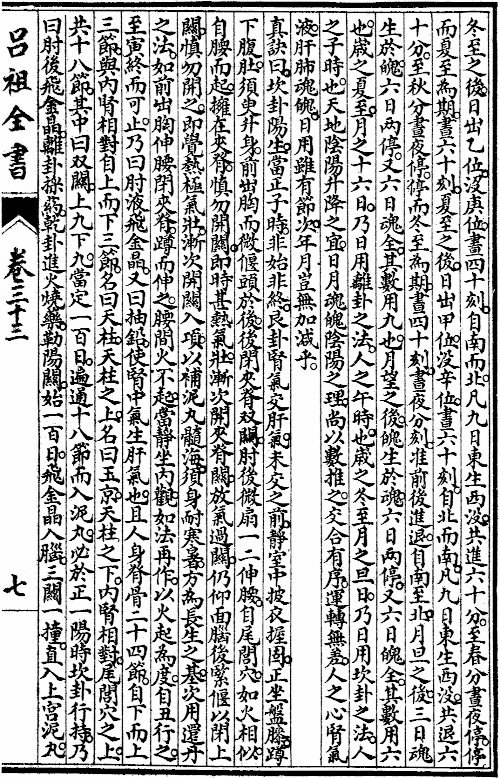 冬至之後日出乙位沒庚位晝四十刻自南而北凡九日東生西沒共進六十分至春分晝夜停停
而夏至為期晝六十刻夏至之後日出甲位沒辛位晝六十刻自北而南凡九日東生西沒共退六
十分至秋分晝夜停停而冬至為期晝四十刻晝夜分刻准前後進退自南至北月旦之後三日魂
生於魄六日兩停又六日魂全其數用九也月望之後魄生於魂六日兩停又六日魄全其數用六
也歲之夏至月之十六日乃日用離卦之法人之午時也歲之冬至月之旦日乃日用坎卦之法人
之子時也天地陰陽升降之宜日月魂魄陰陽之理尚以數推之交合有序運轉無差人之心腎氣
液肝肺魂魄日用雖有節次年月豈無加減乎
真訣曰坎卦陽生當正子時非始非終艮卦腎氣交肝氣未交之前靜室中披衣握固正坐盤膝蹲
下腹肚須臾升身前出胸而微偃頭於後後閉夾脊雙關肘後微扇一二伸腰自尾閭穴如火相似
自腰而起擁在夾脊慎勿開關即時甚熱氣壯漸次開夾脊關放氣過關仍仰面腦後緊偃以閉上
關慎勿開之即覺熱極氣壯漸次開關入項以補泥丸髓海須身耐寒暑方為長生之基次用還丹
之法如前出胸伸腰閉夾脊蹲而伸之腰間火不起當靜坐內觀如法再作以火起為度自丑行之
至寅終而可止乃曰肘液飛金晶又曰抽鉛使腎中氣生肝氣也且人身脊骨二十四節自下而上
三節與內腎相對自上而下三節名曰天柱天柱之上名曰玉京天柱之下內腎相對尾閭穴之上
共十八節其中曰双關上九下九當定一百日遍通十八節而入泥丸必於正一陽時坎卦行持乃
曰肘後飛金晶離卦採藥乾卦進火燒藥勒陽關始一百日飛金晶入腦三關一撞直入上宮泥丸
呂祖全書
卷三十二
七